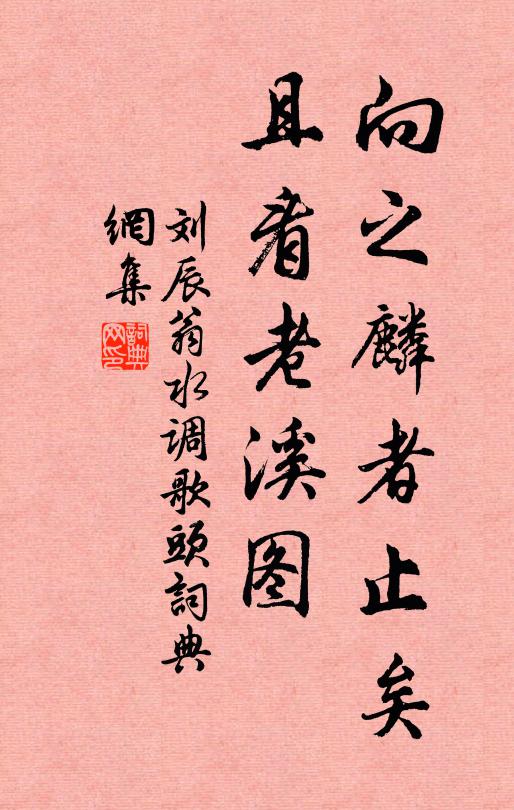 向之麟者止矣
且看老溪图
刘辰翁水调歌頭詞典
網集
詞典
网印